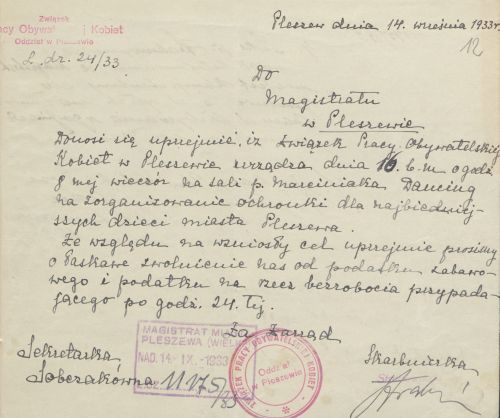 Związek
Pracy Obywatelskiej Kobiet
Oddział w Pleszewie
L. dz. 24/33
Pleszew dnia 14. września 1933 r.
12
Do
Magistratu
w Pleszewie
Donosi się uprzejmie, iż Związek Pracy Obywatelskiej
Kobiet w Pleszewie urządza dnia 16 b.m o godz
8 mej wieczór na sali p. Marciniaka Dancing
na zorganizowanie ochronki dla najbiedniej-
szych dzieci miasta Pleszewa.
Ze względu na wzniosły cel uprzejmie prosimy
o łaskawe zwolnienie nas od podatku zabawo-
wego i podatku na rzecz bezrobocia przypada-
jącego po godz. 24. tej.
Za Zarząd
Sekretarka
Sobczakówna
MAGISTRAT
PLESZEWA (WIELK
NAD. 14 - IX. - 1933
1175/33
ZWIĄZEK PRACY OBYWATELSKIEJ KOBIET
Oddział
w Pleszewie
Skarbniczka